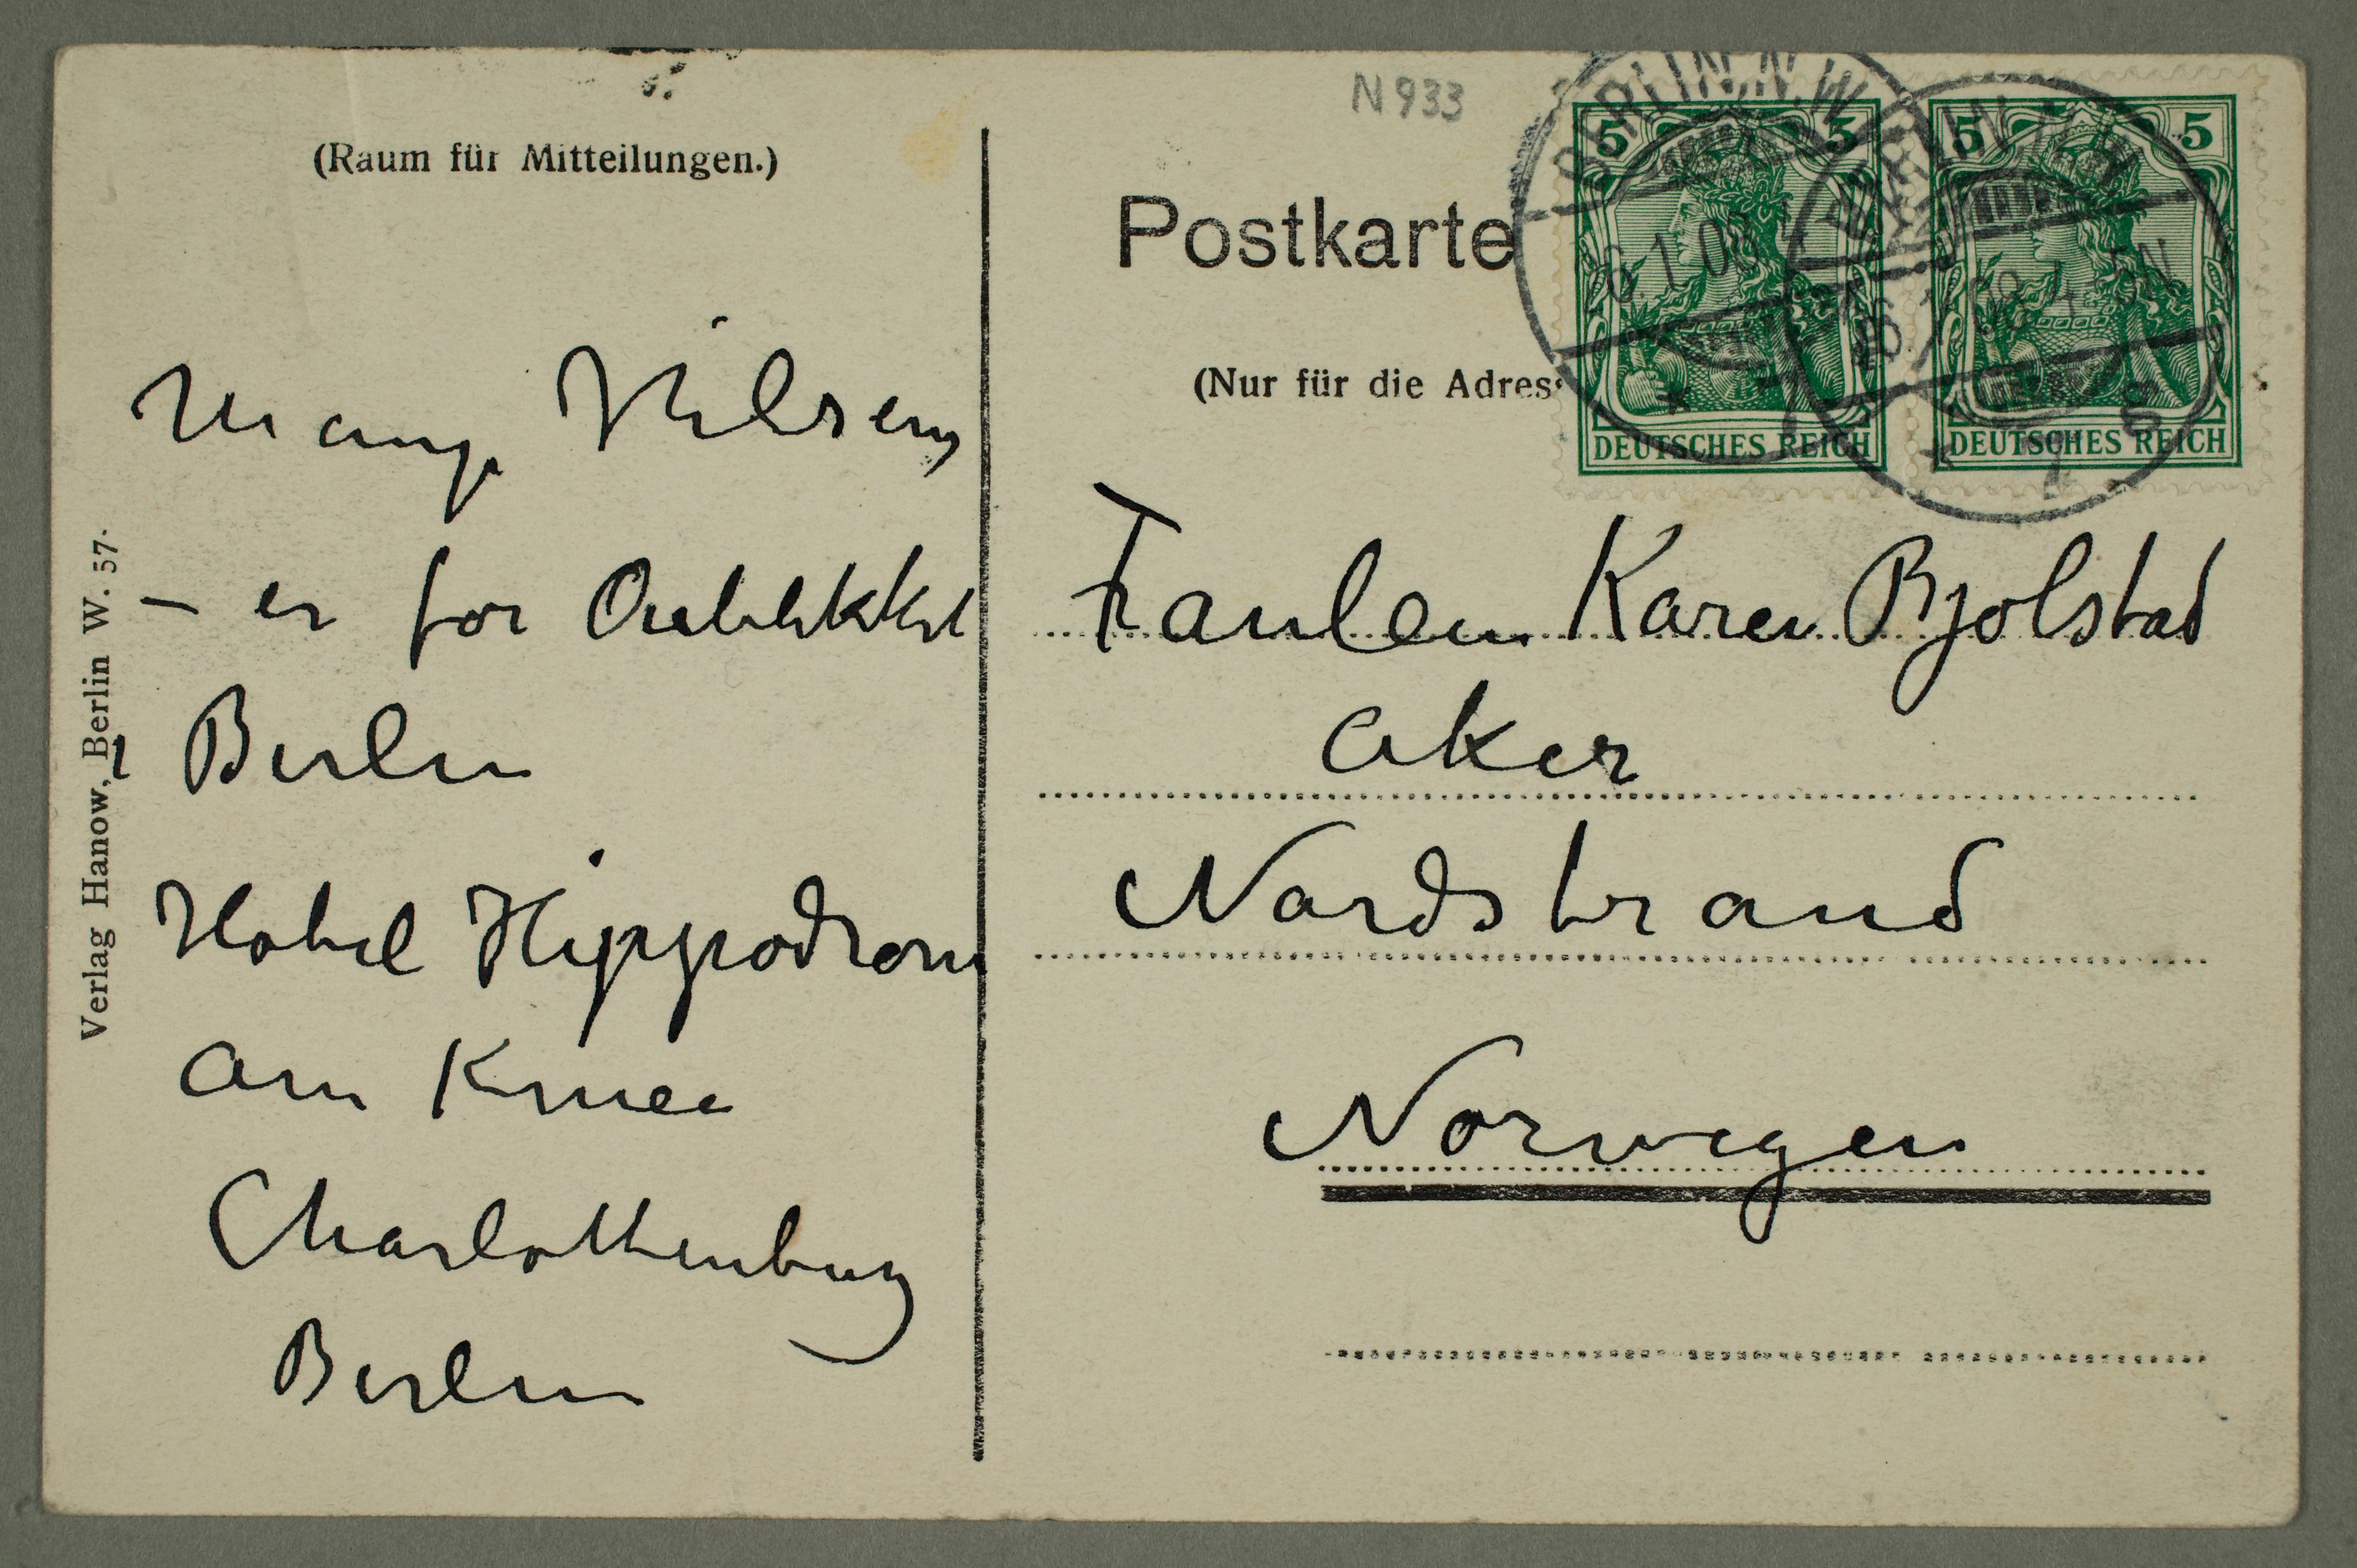 (Raum für Mitteilungen.)
Mange Hilsener
– er for Øieblikket
i Berlin
Hotel Hippodrom
am Kniee
Charlottenburg
Berlin
Verlag Hanow, Berlin W. 57.
N 933
Postkarte
(Nur für die Adres
Fraulein Karen Bjølstad
Aker
Nordstrand
Norwegen
5 5
DEUTSCHES REICH
5 5
DEUTSCHES REICH
BERLIN N.W.